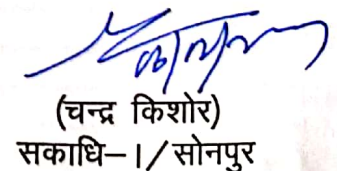 (चन्द्र किशोर)
सकाधि–I/सोनपुर